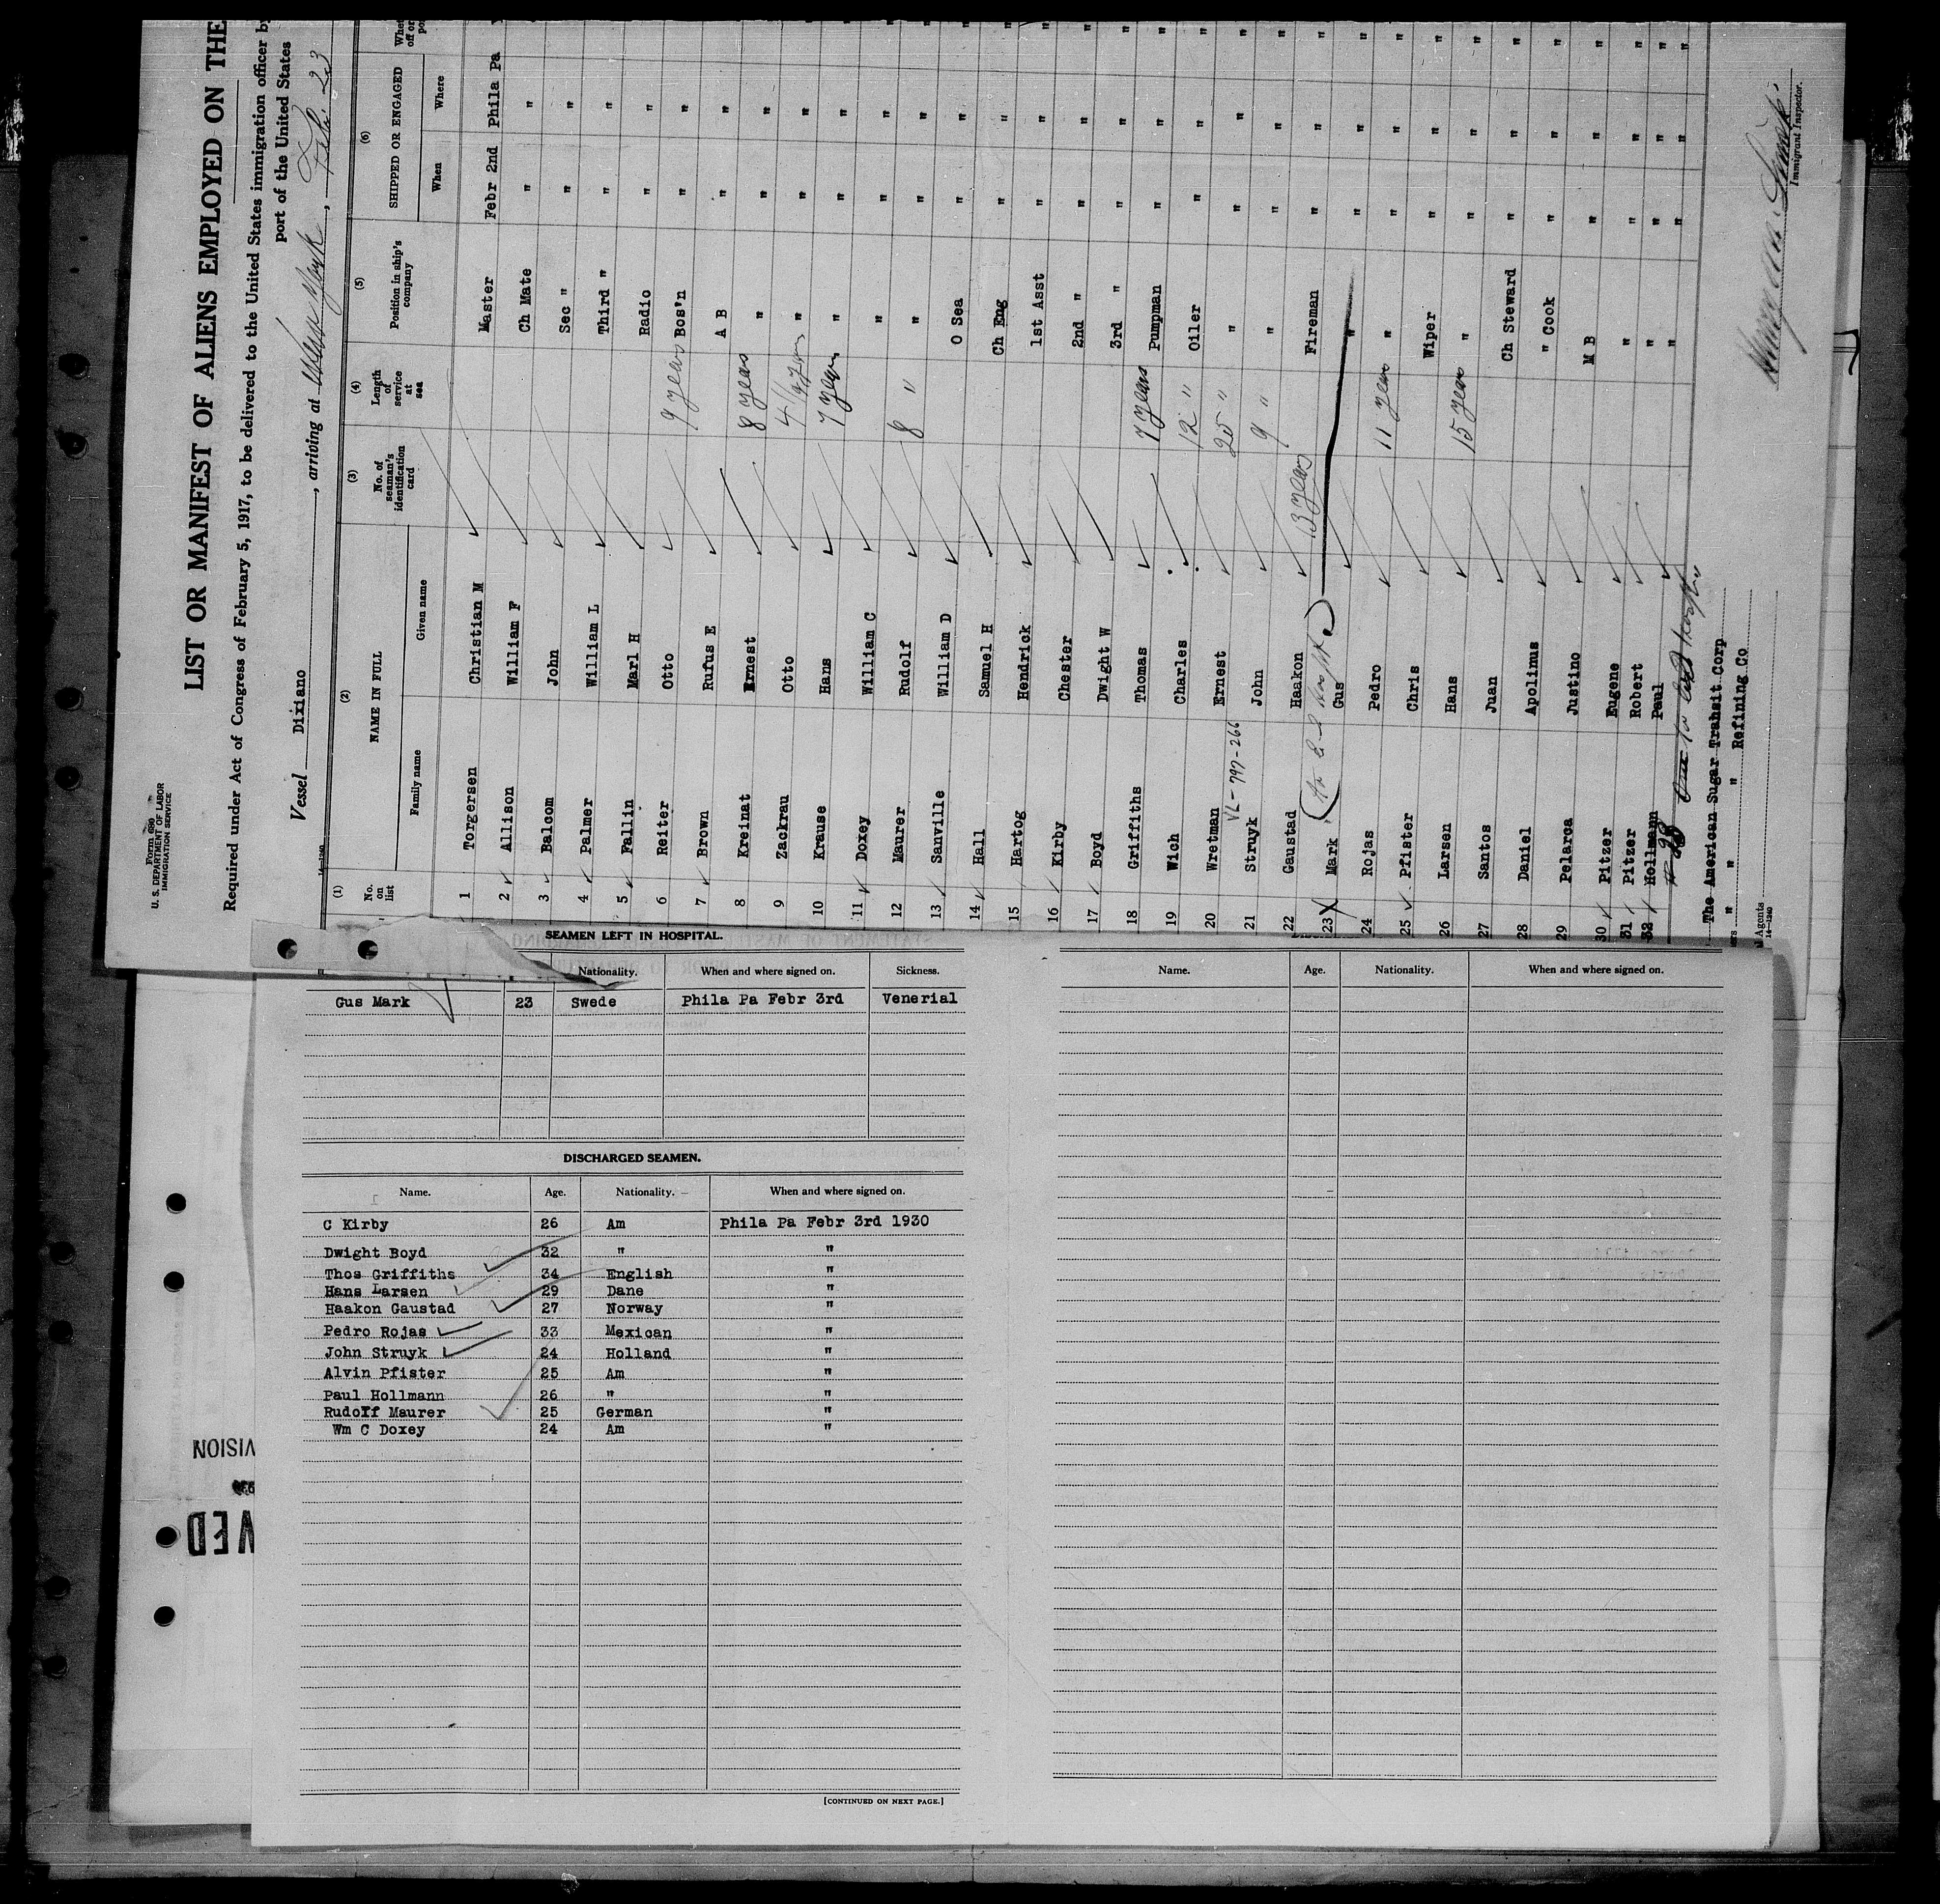 Form 680
U. S. DEPARTMENT OF LABOR
IMMIGRATION SERVICE
LIST OR MANIFEST OF ALIENS EMPLOYED ON THE
Required under Act of Congress of February 5, 1917, to be delivered to the United States immigration officer by
port of the United States
Vessel Dixiano, arriving at New York, Feb. 23
14-1240
(1) (2) (3) (4) (5) (6)
No. on list NAME IN FULL No. of seaman's identification card Length of service at sea Position in ship's company SHIPPED OR ENGAGED
Family name Given name When Where
1 Torgersen Christian M Master Febr 2nd Phila Pa
2 Allison William F Ch Mate " "
3 Balcom John Sec " " "
4 Palmer William L Third " " "
5 Fallin Marl H Radio " "
6 Reiter Otto 9 years Bos'n " "
7 Brown Rufus E A B " "
8 Kreinat Ernest 8 years " " "
9 Zackrau Otto 4 1/2 years " " "
10 Krause Hans 7 years " " "
11 Doxey William C " " "
12 Maurer Rudolf 8 " " " "
13 Sanville William D O Sea " "
14 Hall Samuel H Ch Eng " "
15 Hartog Hendrick 1st Asst " "
16 Kirby Chester 2nd " " "
17 Boyd Dwight W 3rd " " "
18 Griffiths Thomas 7 years Pumpman " "
19 Wich Charles 12 " Oiler " "
20 Wretman Ernest 25 " " " "
VL-797-266
21 Struyk John 9 " " " "
22 Gaustad Haakon 13 years Fireman " "
23 Mark Gus " " "
24 Rojas Pedro 11 years " " "
25 Pfister Chris Wiper " "
26 Larsen Hans 15 years " " "
27 Santos Juan Ch Steward " "
28 Daniel Apolinus " Cook " "
29 Pelarca Justino M B " "
30 Pitzer Eugene " " "
31 Pitzer Robert " " "
32 Hollmann Paul " " "
The American Sugar Transit Corp
" " " Refining Co
Agents
14-1240
Immigrant Inspector.
SEAMEN LEFT IN HOSPITAL.
Nationality. When and where signed on. Sickness.
Gus Mark 23 Swede Phila Pa Febr 3rd Venerial
DISCHARGED SEAMEN.
Name. Age. Nationality. When and where signed on.
C Kirby 26 Am Phila Pa Febr 3rd 1930
Dwight Boyd 32 " "
Thos Griffiths 34 English "
Hans Larsen 29 Dane "
Haakon Gaustad 27 Norway "
Pedro Rojas 33 Mexican "
John Struyk 24 Holland "
Alvin Pfister 25 Am "
Paul Hollmann 26 " "
Rudolf Maurer 25 German "
Wm C Doxey 24 Am "
[CONTINUED ON NEXT PAGE.]
Name. Age. Nationality. When and where signed on.
VISION
VED